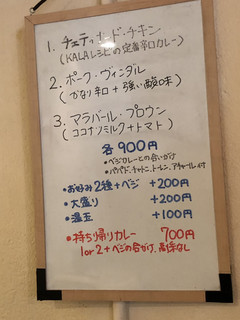 1. チェティナード・チキン
(KALAレシピの定番辛口カレー)
2. ポーク・ヴィンダル
(かなり辛口+強い酸味)
3. マラバール・プロウン
(ココナツミルク+トマト)
各900円
・ベジカレーとの合いがけ
・パパド、チャトニ、トーレン、アチャール付
・お好み2種+ベジ +200円
・大盛り +200円
・温玉 +100円
・持ち帰りカレー 700円
1or2+ベジの合がけ、